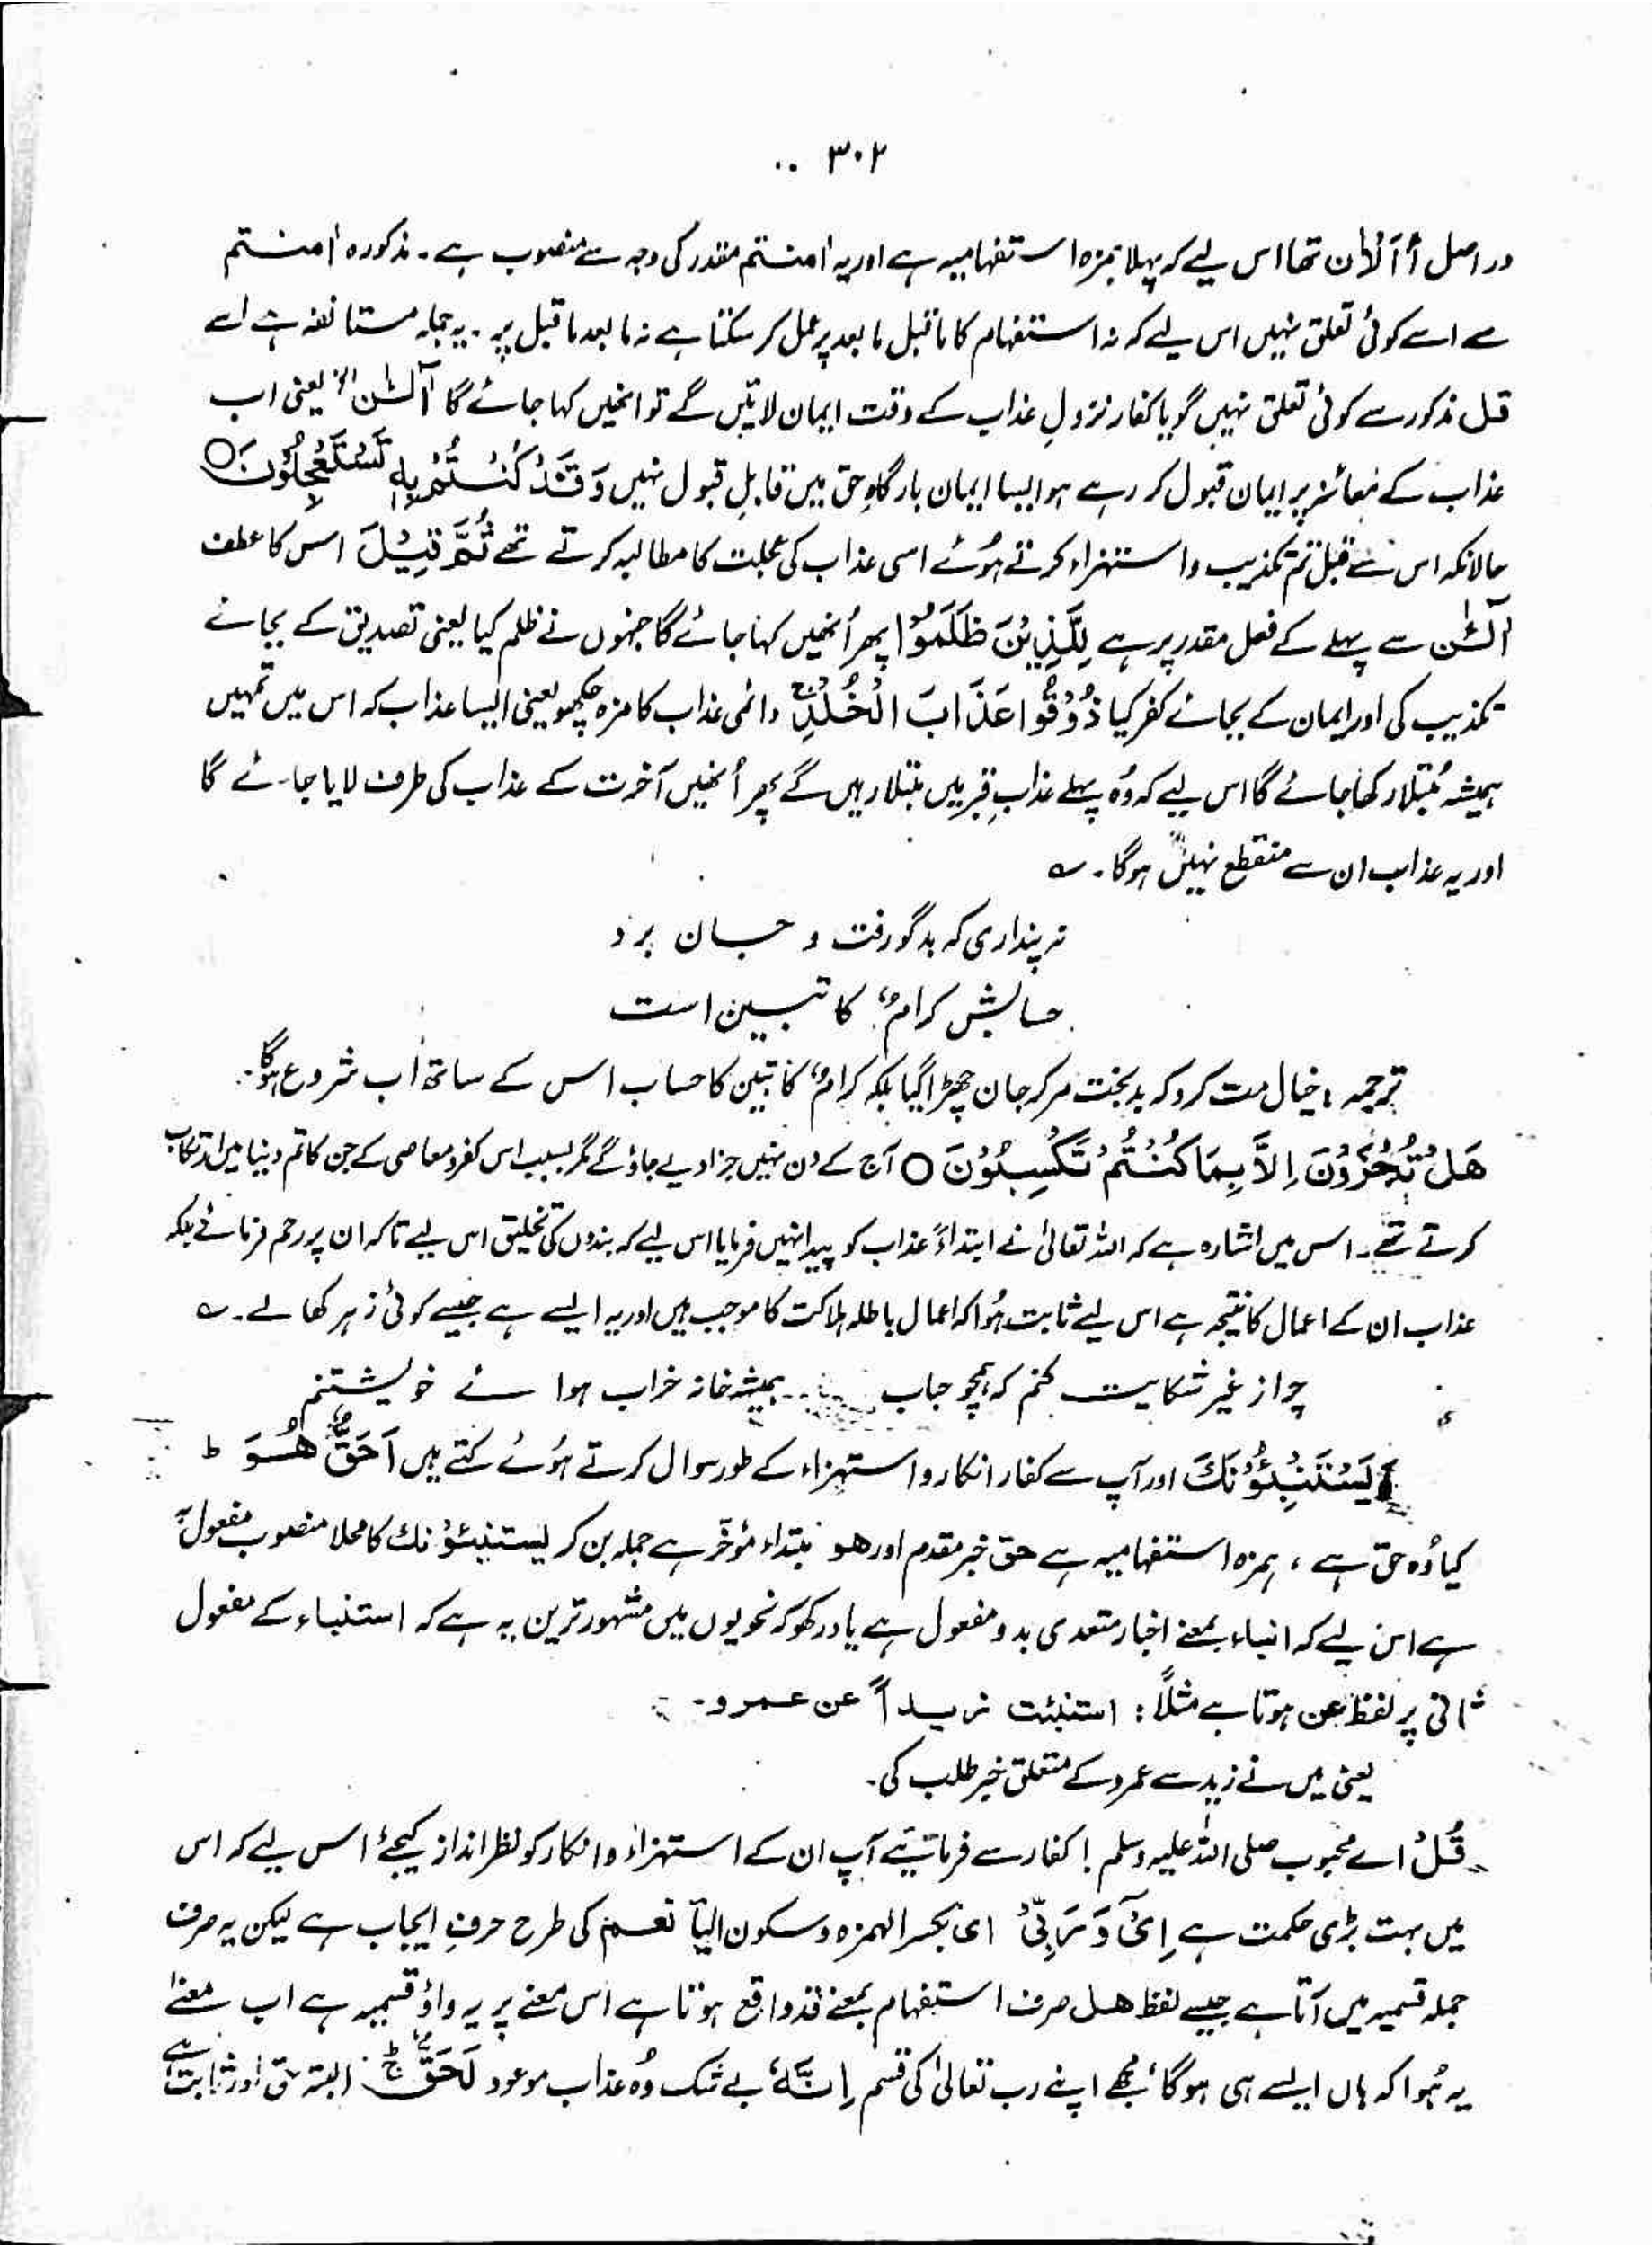 ۳۰۲
دراصل أ اَلْاٰن تھا اس لیے کہ پہلا ہمزہ استفہامیہ ہے اور یہ اٰمنتم مقدر کی وجہ سے منصوب ہے۔ مذکورہ اٰمنتم
سے اسے کوئی تعلق نہیں اس لیے کہ نہ استفہام کا ماقبل مابعد پر عمل کر سکتا ہے نہ مابعد ماقبل پر۔ یہ جملہ مستانفہ ہے اسے
قل مذکور سے کوئی تعلق نہیں گویا کفار نزولِ عذاب کے وقت ایمان لائیں گے تو انھیں کہا جائے گا آلْـٰٔن الخ یعنی اب
عذاب کے معائنہ پر ایمان قبول کر رہے ہو ایسا ایمان بارگاہِ حق میں قابلِ قبول نہیں وَقَدْ كُنْتُمْ بِهٖ تَسْتَعْجِلُوْنَ○
حالانکہ اس سے قبل تم تکذیب و استہزاء کرتے ہُوئے اسی عذاب کی عجلت کا مطالبہ کرتے تھے ثُمَّ قِيْلَ اس کا عطف
آلْـٰٔن سے پہلے کے فعل مقدر پر ہے لِلَّذِيْنَ ظَلَمُوْا پھر اُنھیں کہا جائے گا جنہوں نے ظلم کیا یعنی تصدیق کے بجائے
تکذیب کی اور ایمان کے بجائے کفر کیا ذُوْقُوْا عَذَابَ الْخُلْدِ ج دائمی عذاب کا مزہ چکھو یعنی ایسا عذاب کہ اس میں تمہیں
ہمیشہ مُبتلا رکھا جائے گا اس لیے کہ وُہ پہلے عذابِ قبر میں مبتلا رہیں گے پھر اُنھیں آخرت کے عذاب کی طرف لایا جائے گا
اور یہ عذاب ان سے منقطع نہیں ہوگا۔ ؎
نہ پنداری کہ بدگو رفت و جان برد
حسابش کرامٌ کاتبین است
ترجمہ: خیال مت کرو کہ بدبخت مر کر جان چھڑا گیا بلکہ کرامٌ کاتبین کا حساب اس کے ساتھ اب شروع ہوگا۔
هَلْ تُجْزَوْنَ اِلَّا بِمَا كُنْتُمْ تَكْسِبُوْنَ ○ آج کے دن نہیں جزا دیے جاؤ گے مگر بسبب اس کفر و معاصی کے جن کا تم دنیا میں ارتکاب
کرتے تھے۔ اس میں اشارہ ہے کہ اللہ تعالیٰ نے ابتداءً عذاب کو پیدا نہیں فرمایا اس لیے کہ بندوں کی تخلیق اس لیے تاکہ ان پر رحم فرمائے بلکہ
عذاب ان کے اعمال کا نتیجہ ہے اس لیے ثابت ہُوا کہ اعمال باطلہ ہلاکت کا موجب ہیں اور یہ ایسے ہے جیسے کوئی زہر کھا لے۔ ؎
چرا ز غیر شکایت کنم کہ ہمچو حباب ہمیشہ خانہ خراب ہوائے خویشتنم
يَسْتَنْبِئُوْنَكَ اور آپ سے کفار انکار و استہزاء کے طور سوال کرتے ہُوئے کہتے ہیں اَحَقٌّ هُوَ ط
کیا وُہ حق ہے، ہمزہ استفہامیہ ہے حق خبر مقدم اور ھو مبتداء مؤخر ہے جملہ بن کر یستنبئوْنك کا محلا منصوب مفعول بہٖ
ہے اس لیے کہ انباء بمعنے اخبار متعدی بدو مفعول ہے یاد رکھو کہ نحویوں میں مشہور ترین یہ ہے کہ استنباء کے مفعول
ثانی پر لفظ عن ہوتا ہے مثلاً: استنبئت زیداً عن عمرو۔
یعنی میں نے زید سے عمرو کے متعلق خبر طلب کی۔
قُلْ اے محبوب صلی اللہ علیہ وسلم! کفار سے فرمائیے آپ ان کے استہزاء و انکار کو نظر انداز کیجئے اس لیے کہ اس
میں بہت بڑی حکمت ہے اِیْ وَرَبِّیْ ای بکسر الہمزہ و سکون الیآ نعم کی طرح حرفِ ایجاب ہے لیکن یہ صرف
جملہ قسمیہ میں آتا ہے جیسے لفظ ھل صرف استفہام بمعنے قد واقع ہوتا ہے اس معنے پر یہ واؤ قسمیہ ہے اب معنے
یہ ہُوا کہ ہاں ایسے ہی ہوگا، مجھے اپنے رب تعالیٰ کی قسم اِنَّهٗ بے شک وُہ عذاب موعود لَحَقٌّ ج البتہ حق اور ثابت ہے